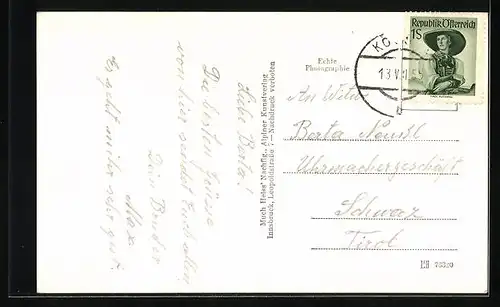 Liebe Berta!
Die besten Grüsse
von hier sendet Euch allen
Dein Bruder
Max
Es geht mir sehr gut.
Much Heiss' Nachflg., Alpiner Kunstverlag
Innsbruck, Leopoldstraße 7 — Nachdruck verboten
Echte
Photographie
Republik Österreich
1S
13.V
An
Berta
Uhrmachergeschäft
Schwaz
Tirol